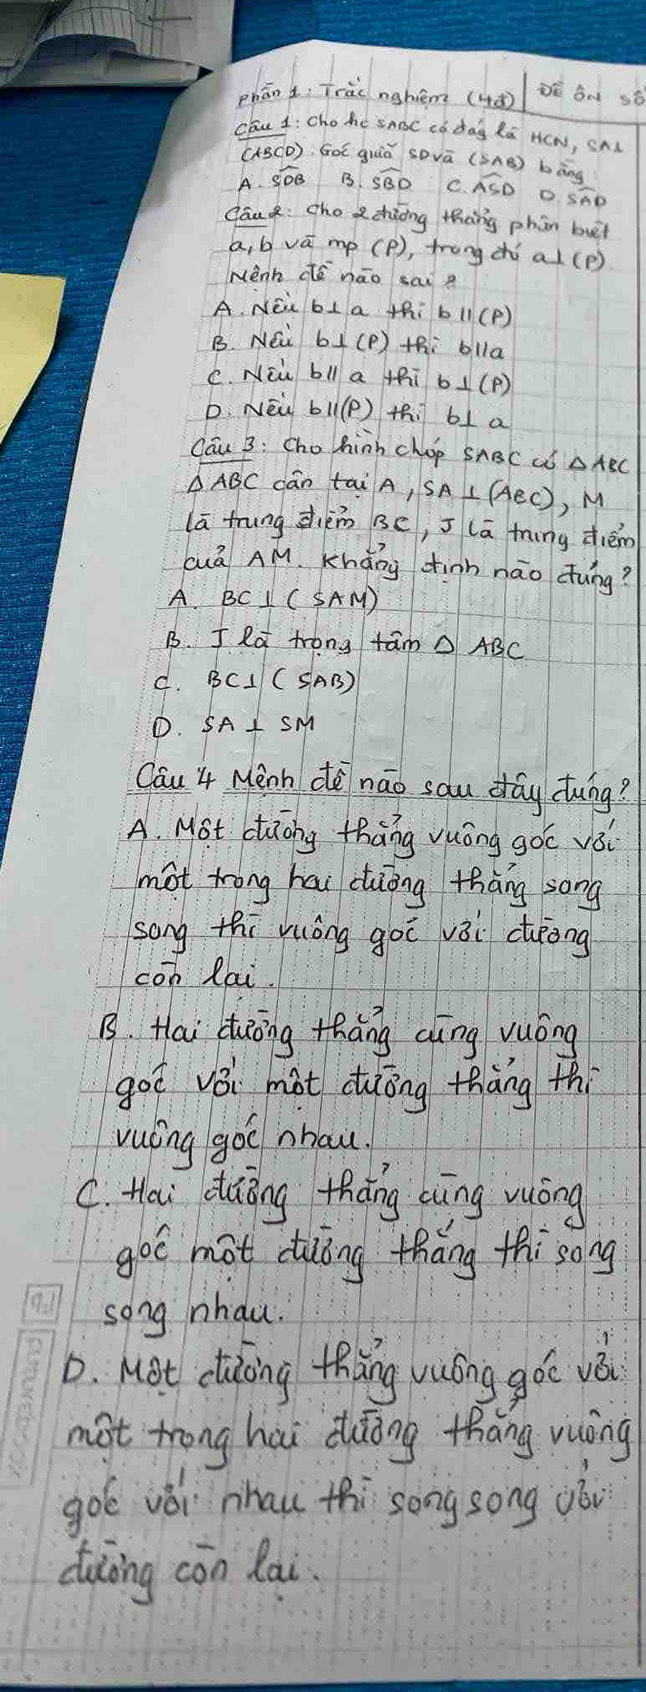 Phần 1: Trắc nghiệm (4đ) ĐỀ ÔN SỐ
Câu 1: Cho hc SABC có đáy là HCN, SA⊥
(ABCD). Góc giữa SD và (SAB) bằng
A. SDB B. SBD C. ASD D. SAD
Câu 2: Cho 2 đường thẳng phân biệt
a, b và mp (P), trong đó a⊥(P)
Mệnh đề nào sai?
A. Nếu b⊥a thì b∥(P)
B. Nếu b⊥(P) thì b∥a
C. Nếu b∥a thì b⊥(P)
D. Nếu b∥(P) thì b⊥a
Câu 3: Cho hình chóp SABC có △ABC
△ABC cân tại A, SA⊥(ABC), M
là trung điểm BC, J là trung điểm
của AM. Khẳng định nào đúng?
A. BC⊥(SAM)
B. J là trọng tâm △ABC
C. BC⊥(SAB)
D. SA⊥SM
Câu 4 Mệnh đề nào sau đây đúng?
A. Một đường thẳng vuông góc với
một trong hai đường thẳng song
song thì vuông góc với đường
còn lại.
B. Hai đường thẳng cùng vuông
góc với một đường thẳng thì
vuông góc nhau.
C. Hai đường thẳng cùng vuông
góc một đường thẳng thì song
song nhau.
D. Một đường thẳng vuông góc với
một trong hai đường thẳng vuông
góc với nhau thì song song với
đường còn lại.